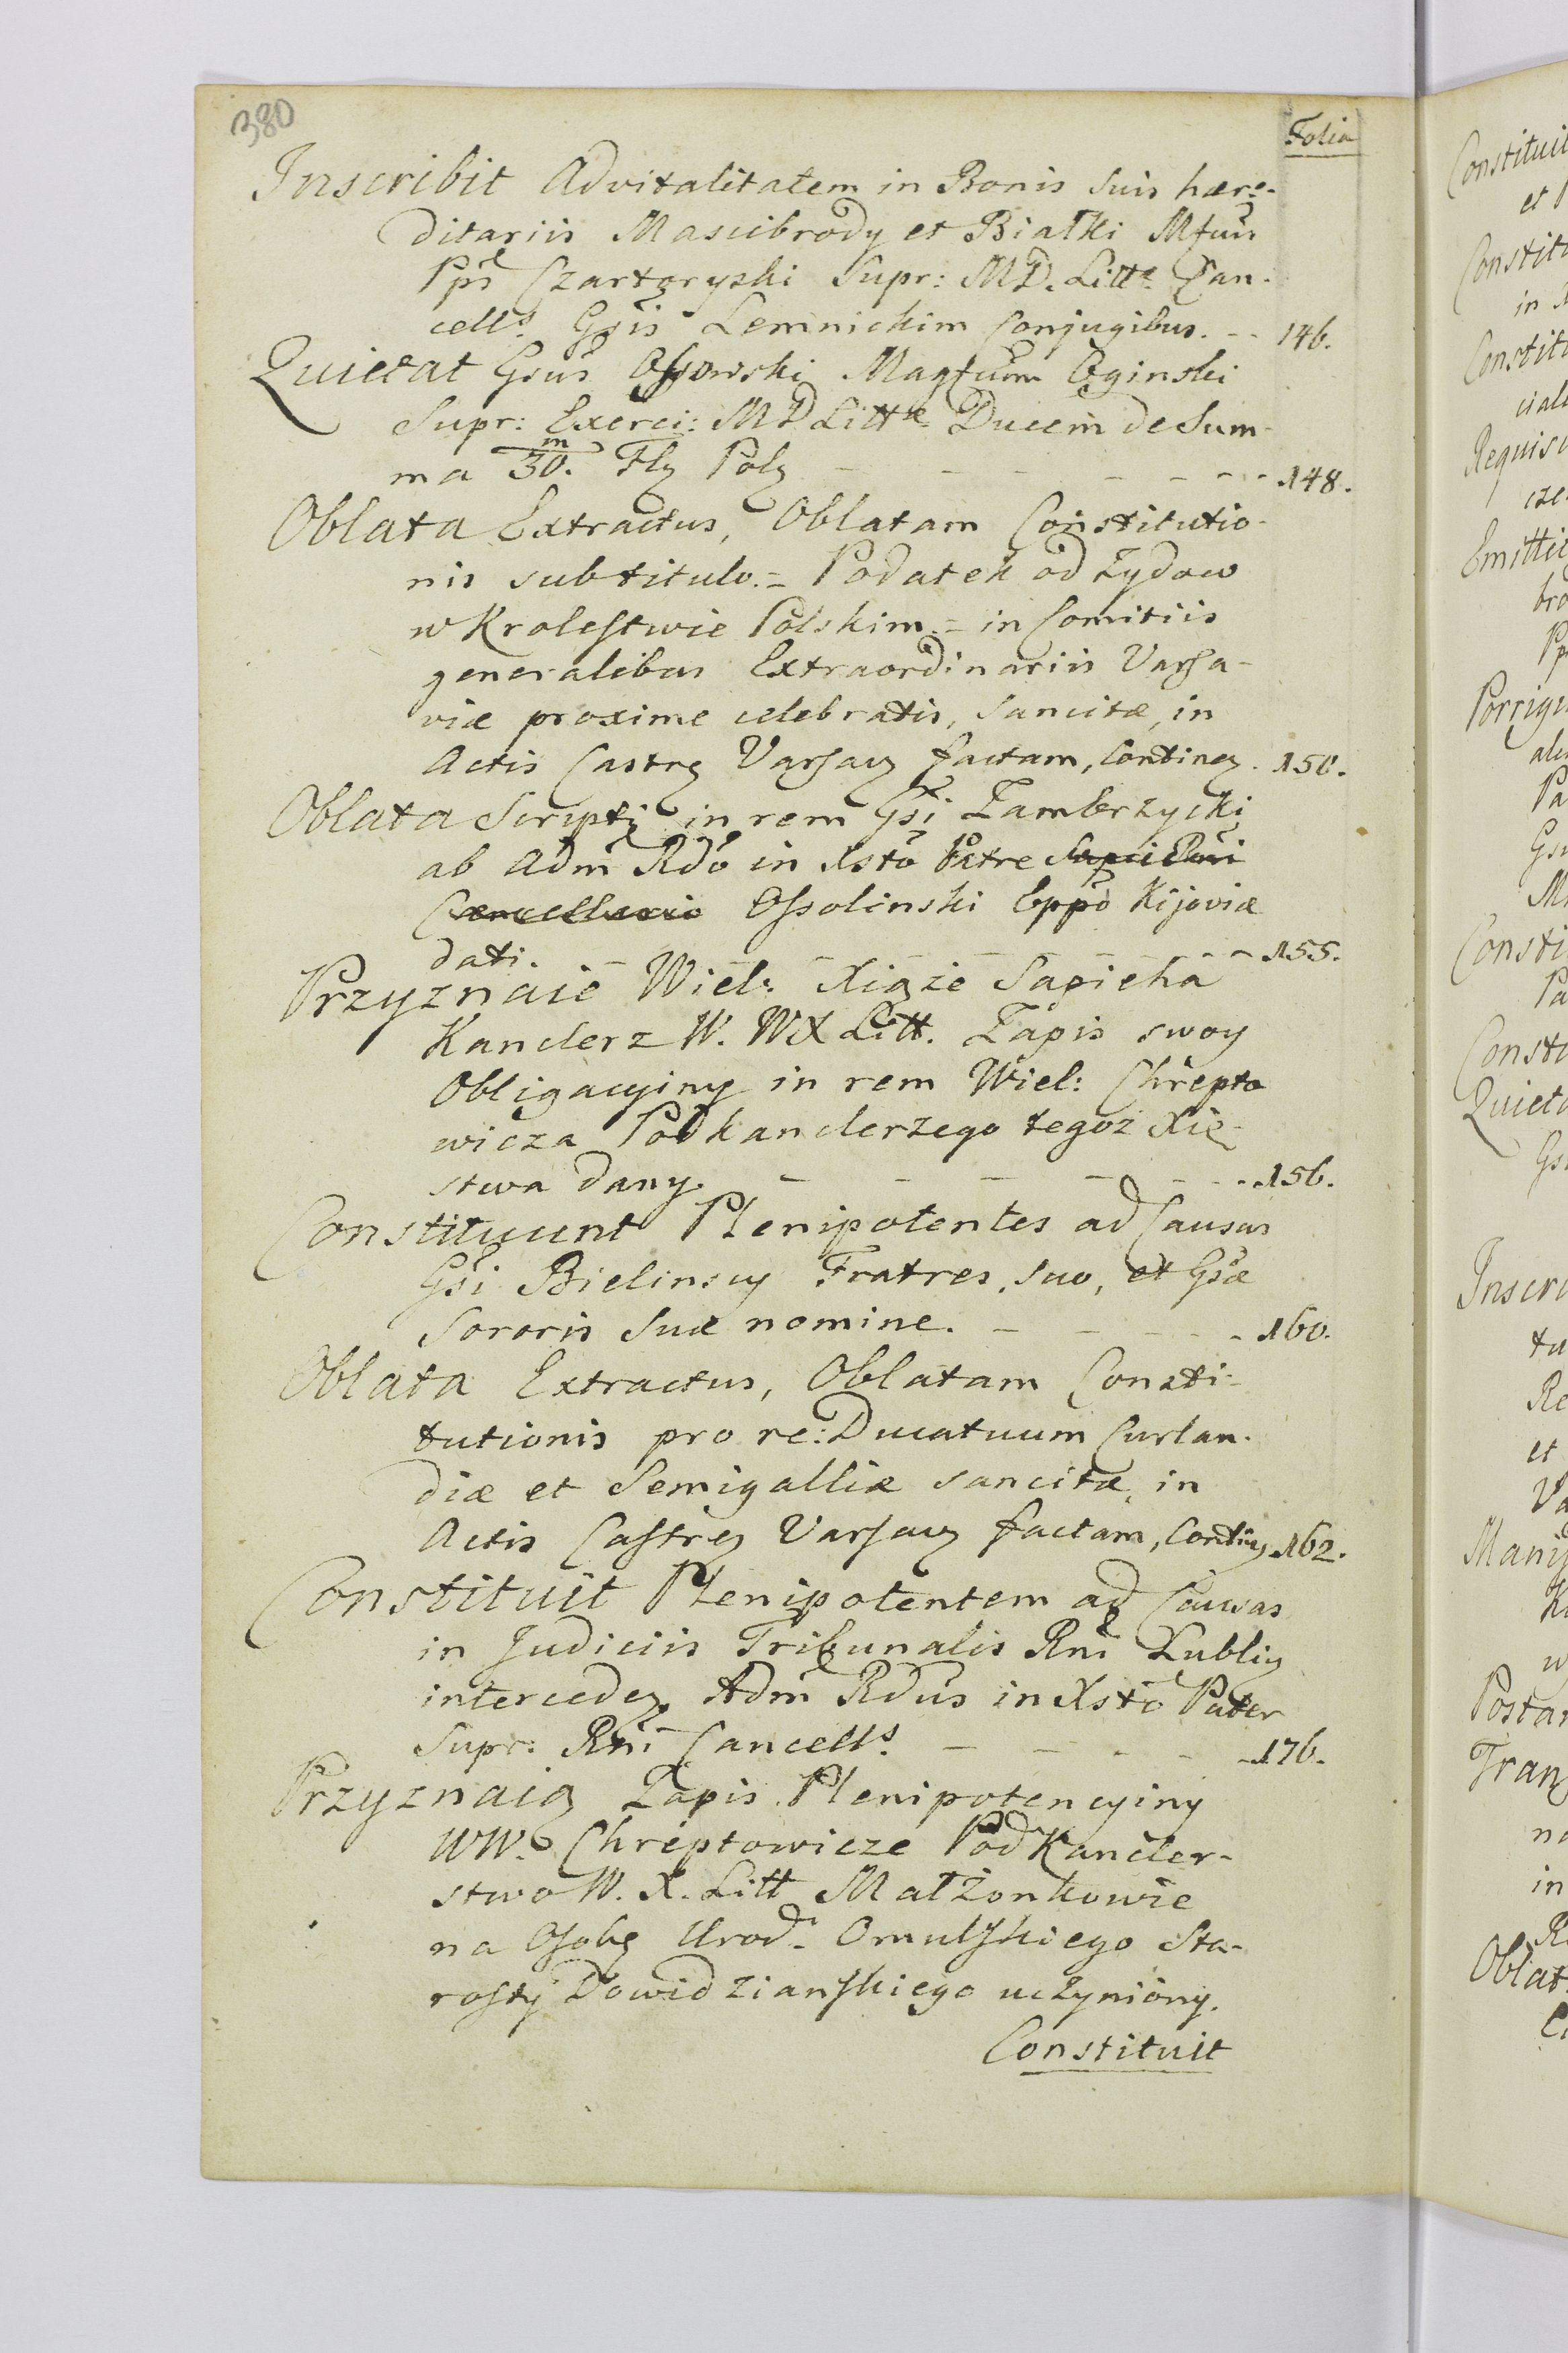 380
Folia
Inscribit Advitalitatem in Bonis Suis hære-
ditariis Mascibrody et Białki Mfus
Pps Czartoryski Supr: M.D. Littæ Can-
cells Gsis Lemnickim Conjugibus. - - 146.
Quietat Gsus Ossowski Magfum Oginski
Supr: Exerci: M D Littæ Ducem de Sum-
ma 30.m Flg Polg - - - - - - 148.
Oblata Extractus, Oblatam Constitutio-
nis sub titulo = Podatek od Zydow
w Krolestwie Polskim = in Comitiis
generalibus Extraordinariis Varsa-
viæ proxime celebratis, sancitæ, in
Actis Castrg Varsavg factam, Conting. 150.
Oblata Scripti in rem Gsi Zambrzycki
ab Adm Rdo in Xsto Patre
Cancellario Ossolinski Eppo Kijoviæ
dati. - - - - - - - - 155.
Przyznaie Wiel: Xiąże Sapieha
Kanclerz W. W X Litt. Zapis swoy
Obligacyiny in rem Wiel: Chrepto
wicza Podkanclerzego tegoż Xię-
stwa dany. - - - - - - 156.
Constituunt Plenipotentes ad Causas
Gsi Bielinscy Fratres, suo, et Gsæ
Sororis Suæ nomine. - - - - 160.
Oblata Extractus, Oblatam Consti-
tutionis pro re: Ducatuum Curlan-
diæ et Semigalliæ sancitæ, in
Actis Castrg Varsavg factam, Conting. 162.
Constituit Plenipotentem ad Causas
in Judiciis Tribunalis Rni Lublig
intercedeg, Adm Rdus in Xsto Pater
Supr: Rni Cancells. - - - - - 176.
Przyznaią Zapis Plenipotencyiny
WW. Chreptowicze Pod Kancler-
stwo W. X. Litt Małżonkowie
na Osobę Urod. Omulskiego Sta-
rosty Dowidzianskiego uczyniony.
Constituit